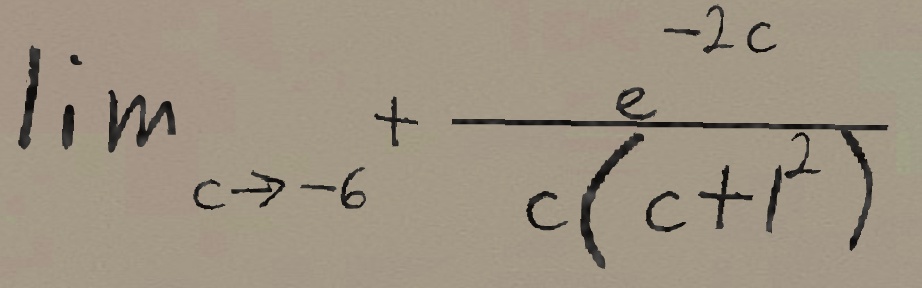 \lim_{c \to -6^{+}} \frac{e^{-2c}}{c(c+1^{2})}